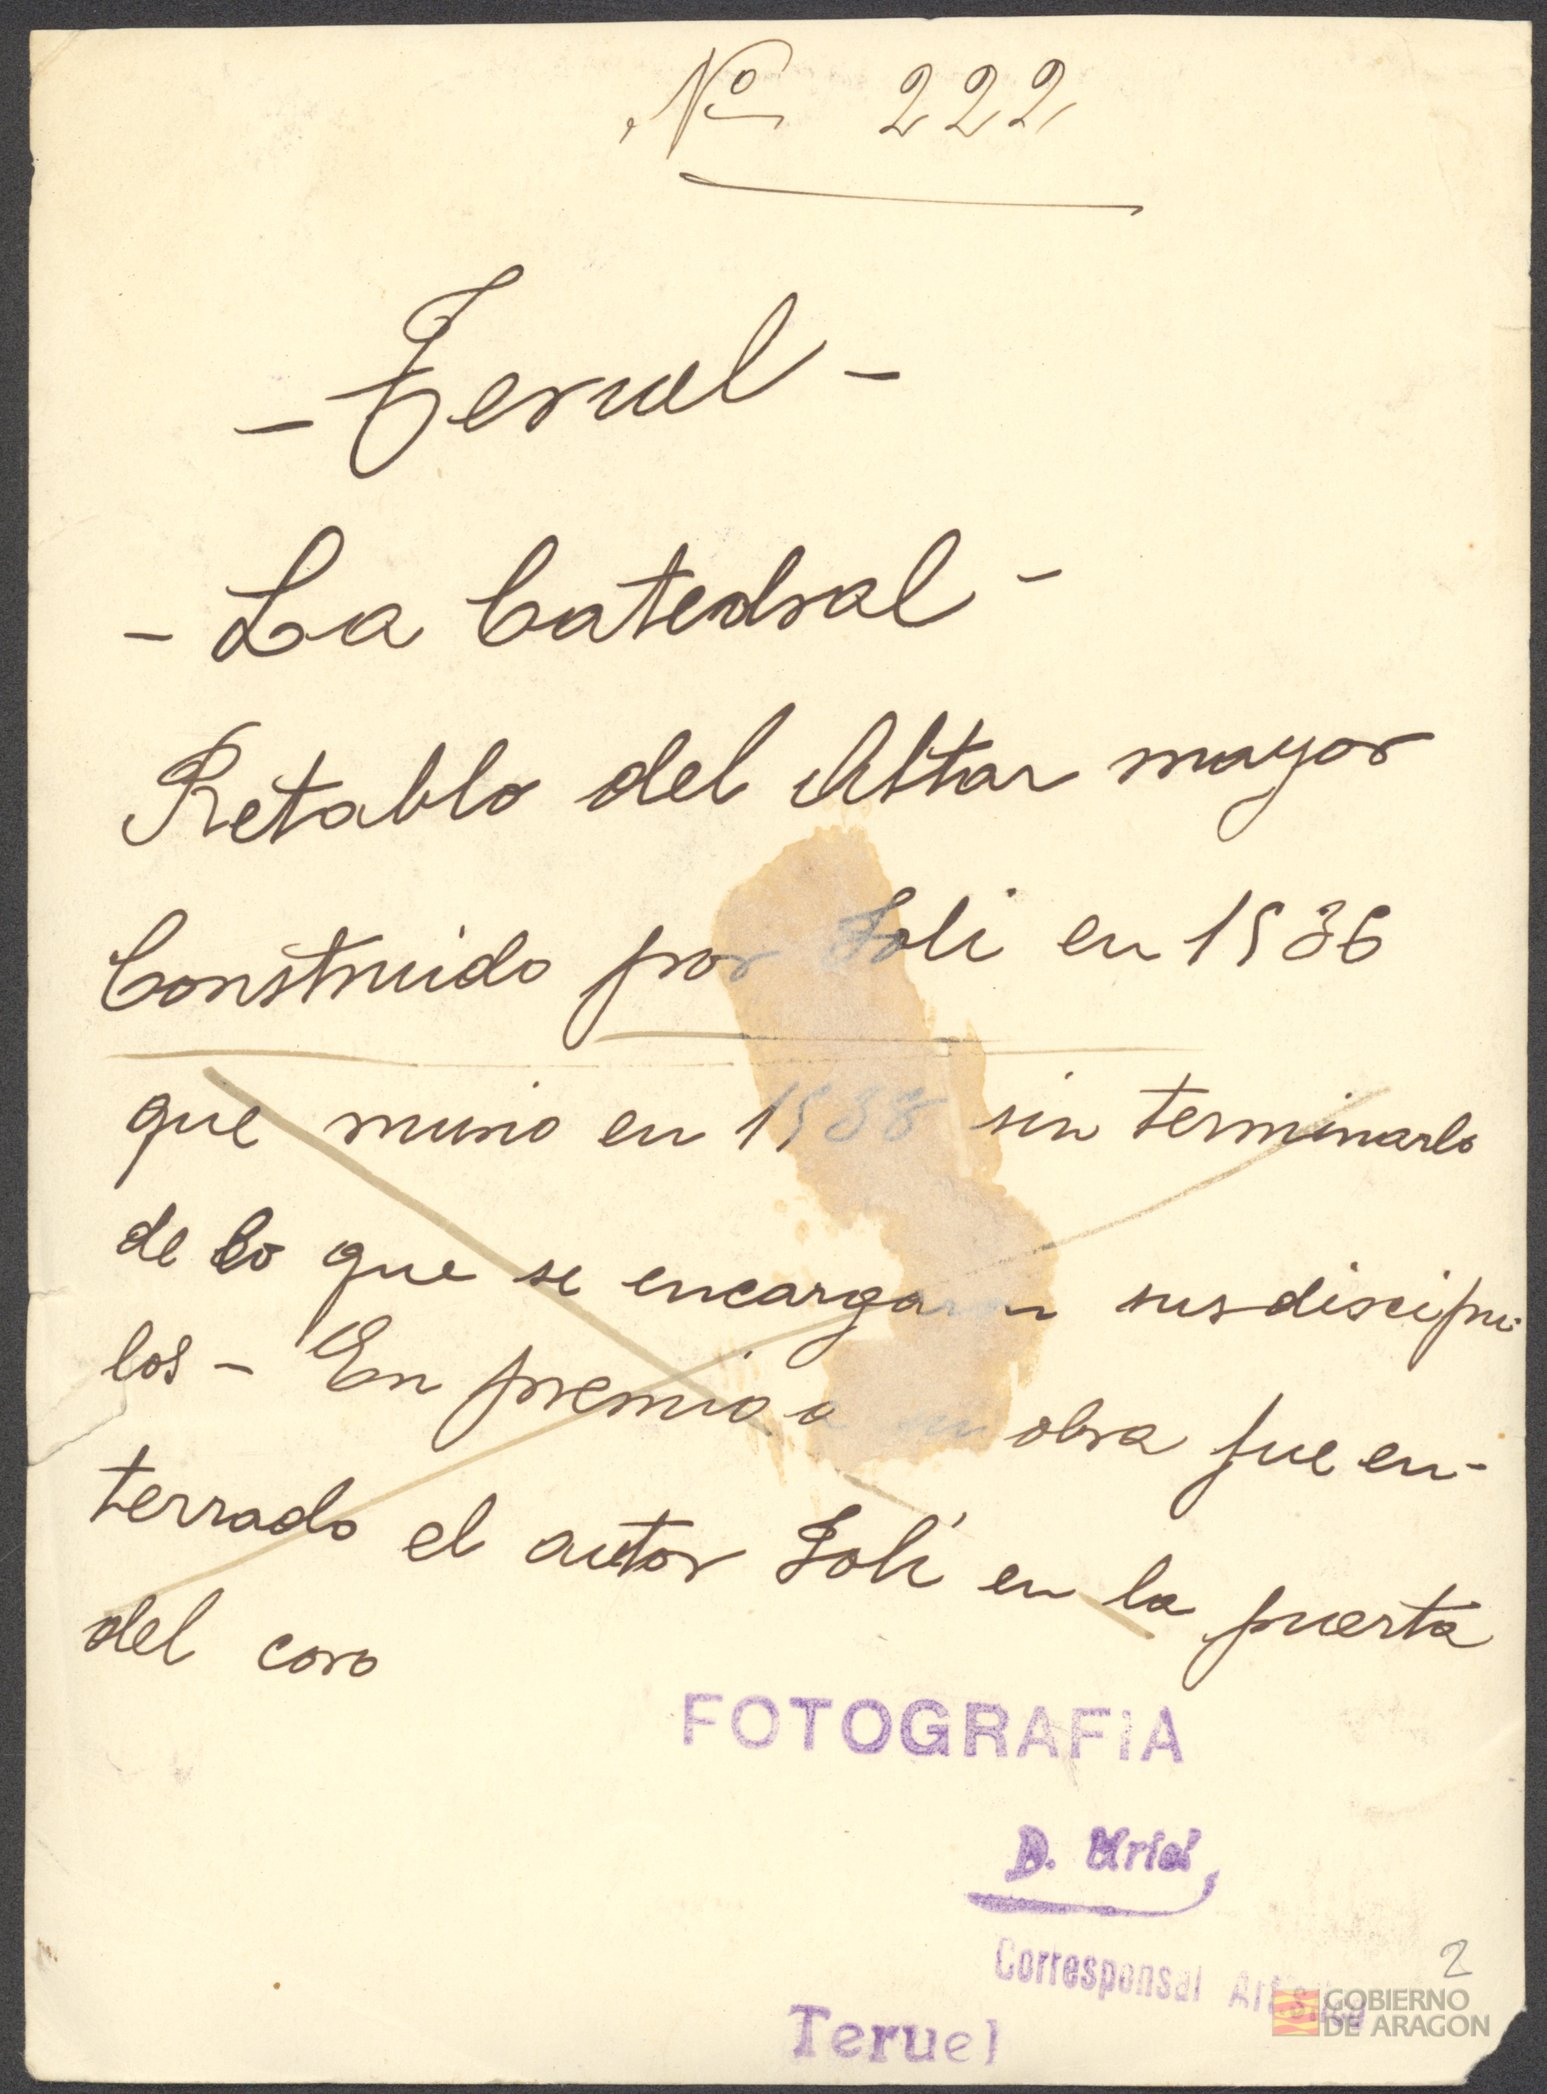 Nº 222
- Teruel -
- La Catedral -
Retablo del Altar mayor
Construido por Joli en 1536
que murio en 1538 sin terminarlo
de lo que se encargaron sus discipu-
los - En premio a su obra fue en-
terrado el autor Joli en la puerta
del coro
FOTOGRAFIA
D. Uriel
Corresponsal Artístico
Teruel
2
GOBIERNO
DE ARAGON